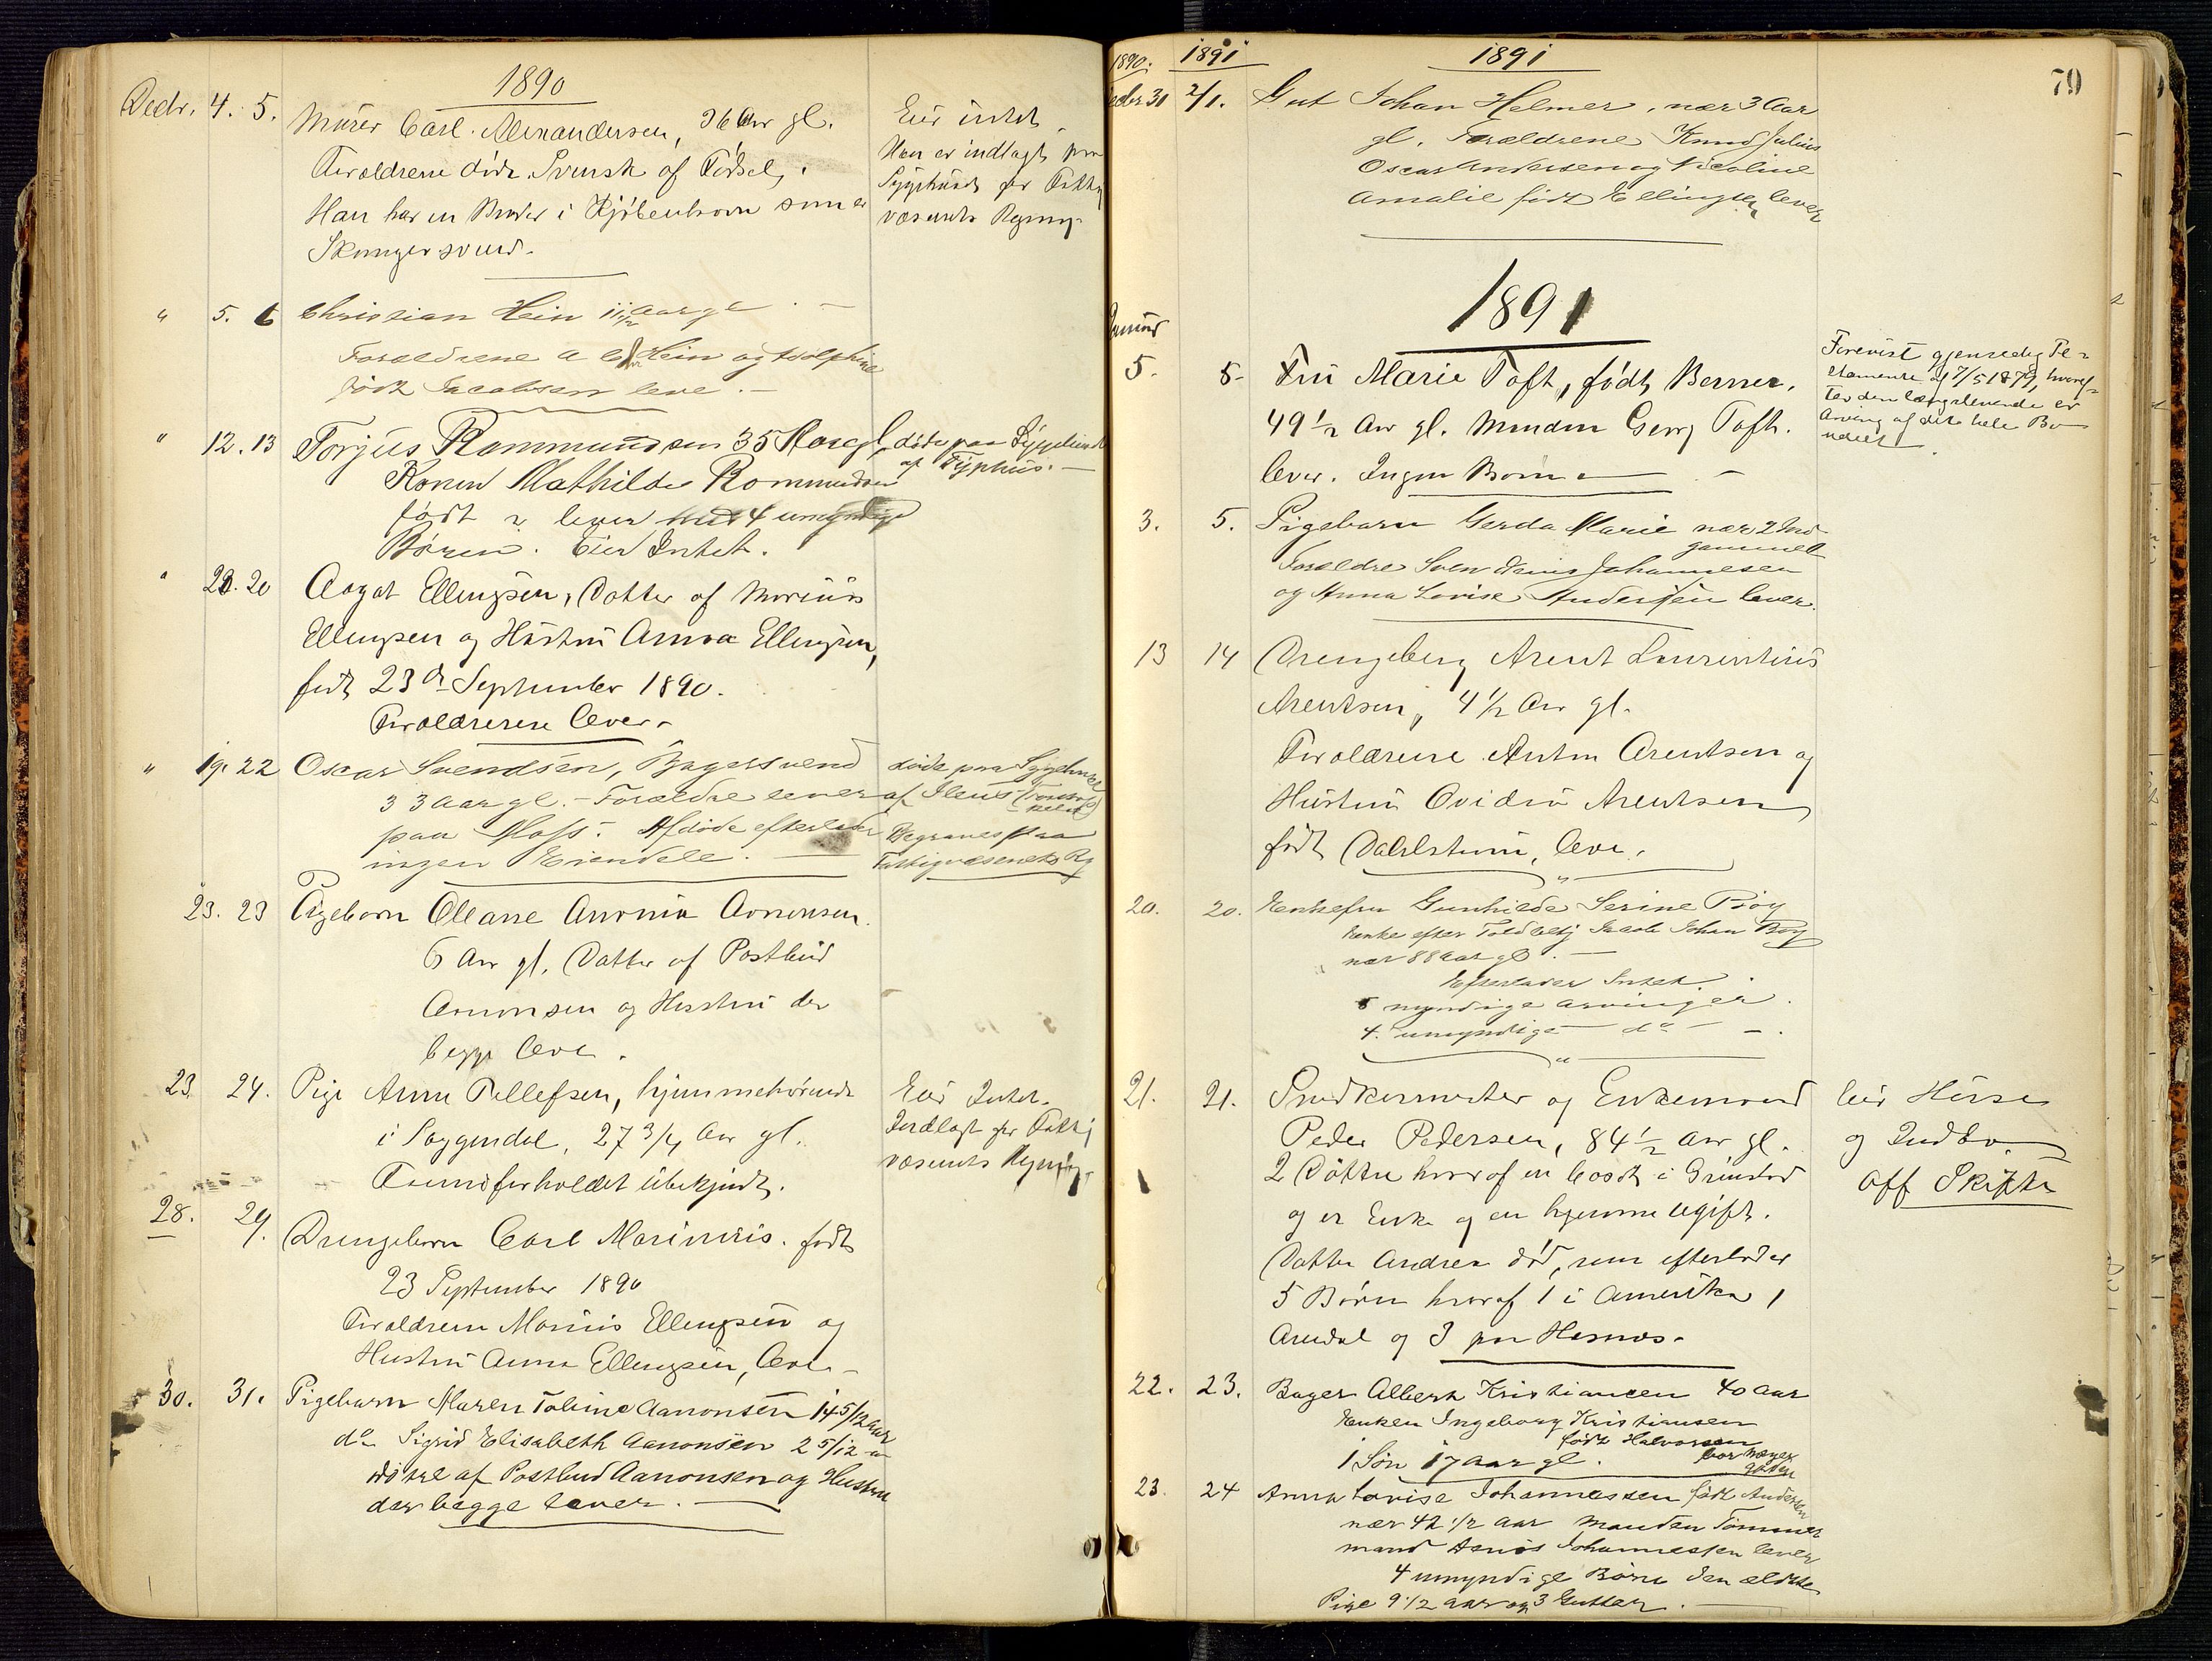 1890
Decbr. 4. 5. Murer Carl Alexandersen, 36 Aar gl. Eier intet.
Forældrene døde. Svensk af Fødsel,. Han er indlagt paa
Han har en Broder i Kjøbenhavn som er Sygehuset for Fattig
væsenets Regning
" 5. 6 Christian Hein 11 1/2 Aar gl. —
Forældrene A C Hein og
født Jacobsen leve. —
" 12. 13 Torjus Rommundsen 35 Aar gl, døde paa Sygehuset
af Typhus. —
Konen Mathilde Rommundsen
født ? lever med 4 umyndige
Børn. Eier Intet.
" 20. 20 Aagot Ellingsen, Datter af Marius
Ellingsen og Hustru Anna Ellingsen,
født 23de September 1890.
Forældrene lever.
" 19. 22 Oscar Svendsen, Bagersvend døde paa Sygehuset
33 Aar gl. - Forældre lever af Ileus
paa Moss. Afdøde efterlader Begraves paa
ingen Eiendele. Fattigvæsenets Rg
23. 23 Pigebarn Oleane Aanonsen.
6 Aar gl. Datter af Postbud
Aanonsen og Hustru der
begge leve.
23. 24. Pige Anne Tellefsen, hjemmehørende Eier Intet.
i Soggendal, 27 3/4 Aar gl. Indlagt for Fattig
væsenets Regning.
ubekjendt.
28. 29. Drengebarn Carl Marinius. født
23 September 1890
Forældrene Marius Ellingsen og
Hustru Anna Ellingsen, leve. —
30. 31. Pigebarn Maren Tobine Aanonsen 14 5/12 Aar
do Sigrid Elisabeth Aanonsen 2 5/12 —
Døtre af Postbud Aanonsen og Hustru
der begge lever. —
79
1890. 1891 1891
Decbr 31 2/1. Gut Johan Helmer, nær 3 Aar
gl. Forældrene Knud Julius
Oscar Andersen og Nicoline
Amalie født Ellingsen lever
1891
Januar
5. 5. Fru Marie Toft, født Berner,
49 1/2 Aar gl. Manden Georg Toft.
lever. Ingen Børn
Forevist gjensidig Te-
stamente af 7/5 1879, hvoref-
ter den længstlevende er
Arving af det hele Bo
udeelt.
3. 5. Pigebarn Gerda Marie nær 2 Md
gammelt
Forældre Sven Johannesen
og Anna Lovise Andersen lever.
13 14 Drengebarn Arent Laurentius
Arentsen, 4 1/2 Aar gl.
Forældrene Anton Arentsen og
Hustru Ovidia Arentsen
født Dahlstrøm, leve.
20. 20. Enkefru Gunhilde Serine Bøy
Enke efter Toldbetj Jacob Johan Bøy
nær 88 Aar gl. —
Efterlader Intet.
5 myndige Arvinger.
4. umyndige — do — —.
21. 21. Snedkermester og Enkemand Eier Huse
Peder Pedersen, 84 1/2 Aar gl. og Indbo
2 Døttre hvoraf en bosat i Grimstad Off Skifte
og er Enke og en hjemme ugift.
Datter Andrea død, som efterlader
5 Børn hvoraf 1 i Amerika, 1
Arendal og 3 paa Hisnæs.
22. 23. Bager Albert Kristiansen 40 Aar
Enken Ingeborg Kristiansen
født Halvorsen
1 Søn 17 Aar gl.
23. 24 Anna Lovise Johannessen født Andersen
nær 42 1/2 Aar Manden Tømmer
mand Johannessen lever
4 umyndige Børn den ældste
Pige 9 1/2 Aar og 3 Gutter. —